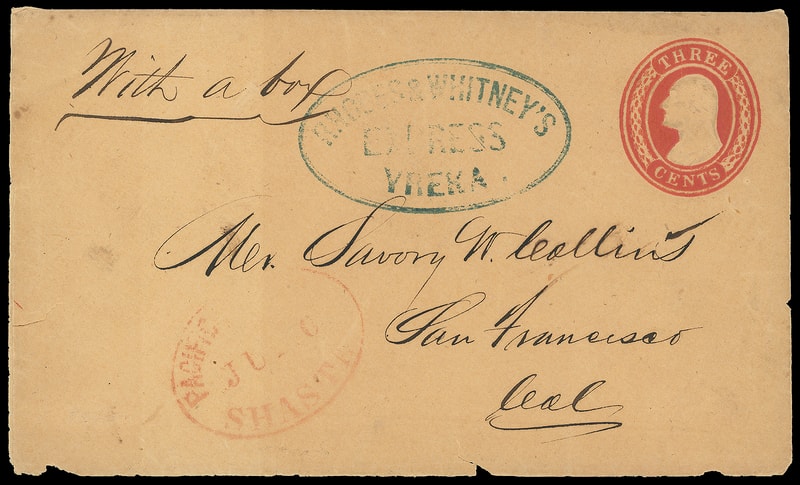 With a box
RHODES & WHITNEY'S
EXPRESS
YREKA.
THREE
CENTS
Mr. Savory W. Collins
San Francisco
Cal
PACIFIC
SHASTA